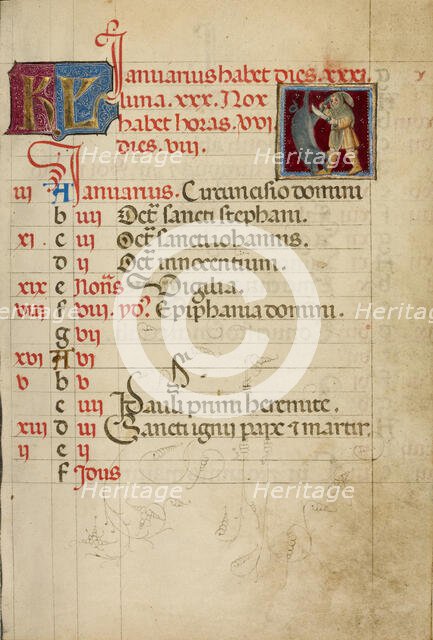 KL Ianuarius habet dies. xxxi.
luna. xxx. Nox
habet horas. xvi
dies. viii.
iii A Ianuarius. Circuncisio domini
b iiii Oct̄ sancti stephani.
xi c iii Oct̄ sancti iohannis.
d ii Oct̄ innocentium.
xix e Noñs Vigilia.
viii f viii. yđ? Epiphania domini.
g vii
xvi A vi
v b v
c iiii Pauli primi heremite.
xiii d iii Sancti igini pape ⁊ martir.
ii e ii
f Idus
Heritage
Heritage
Heritage
Heritage
Heritage
Heritage